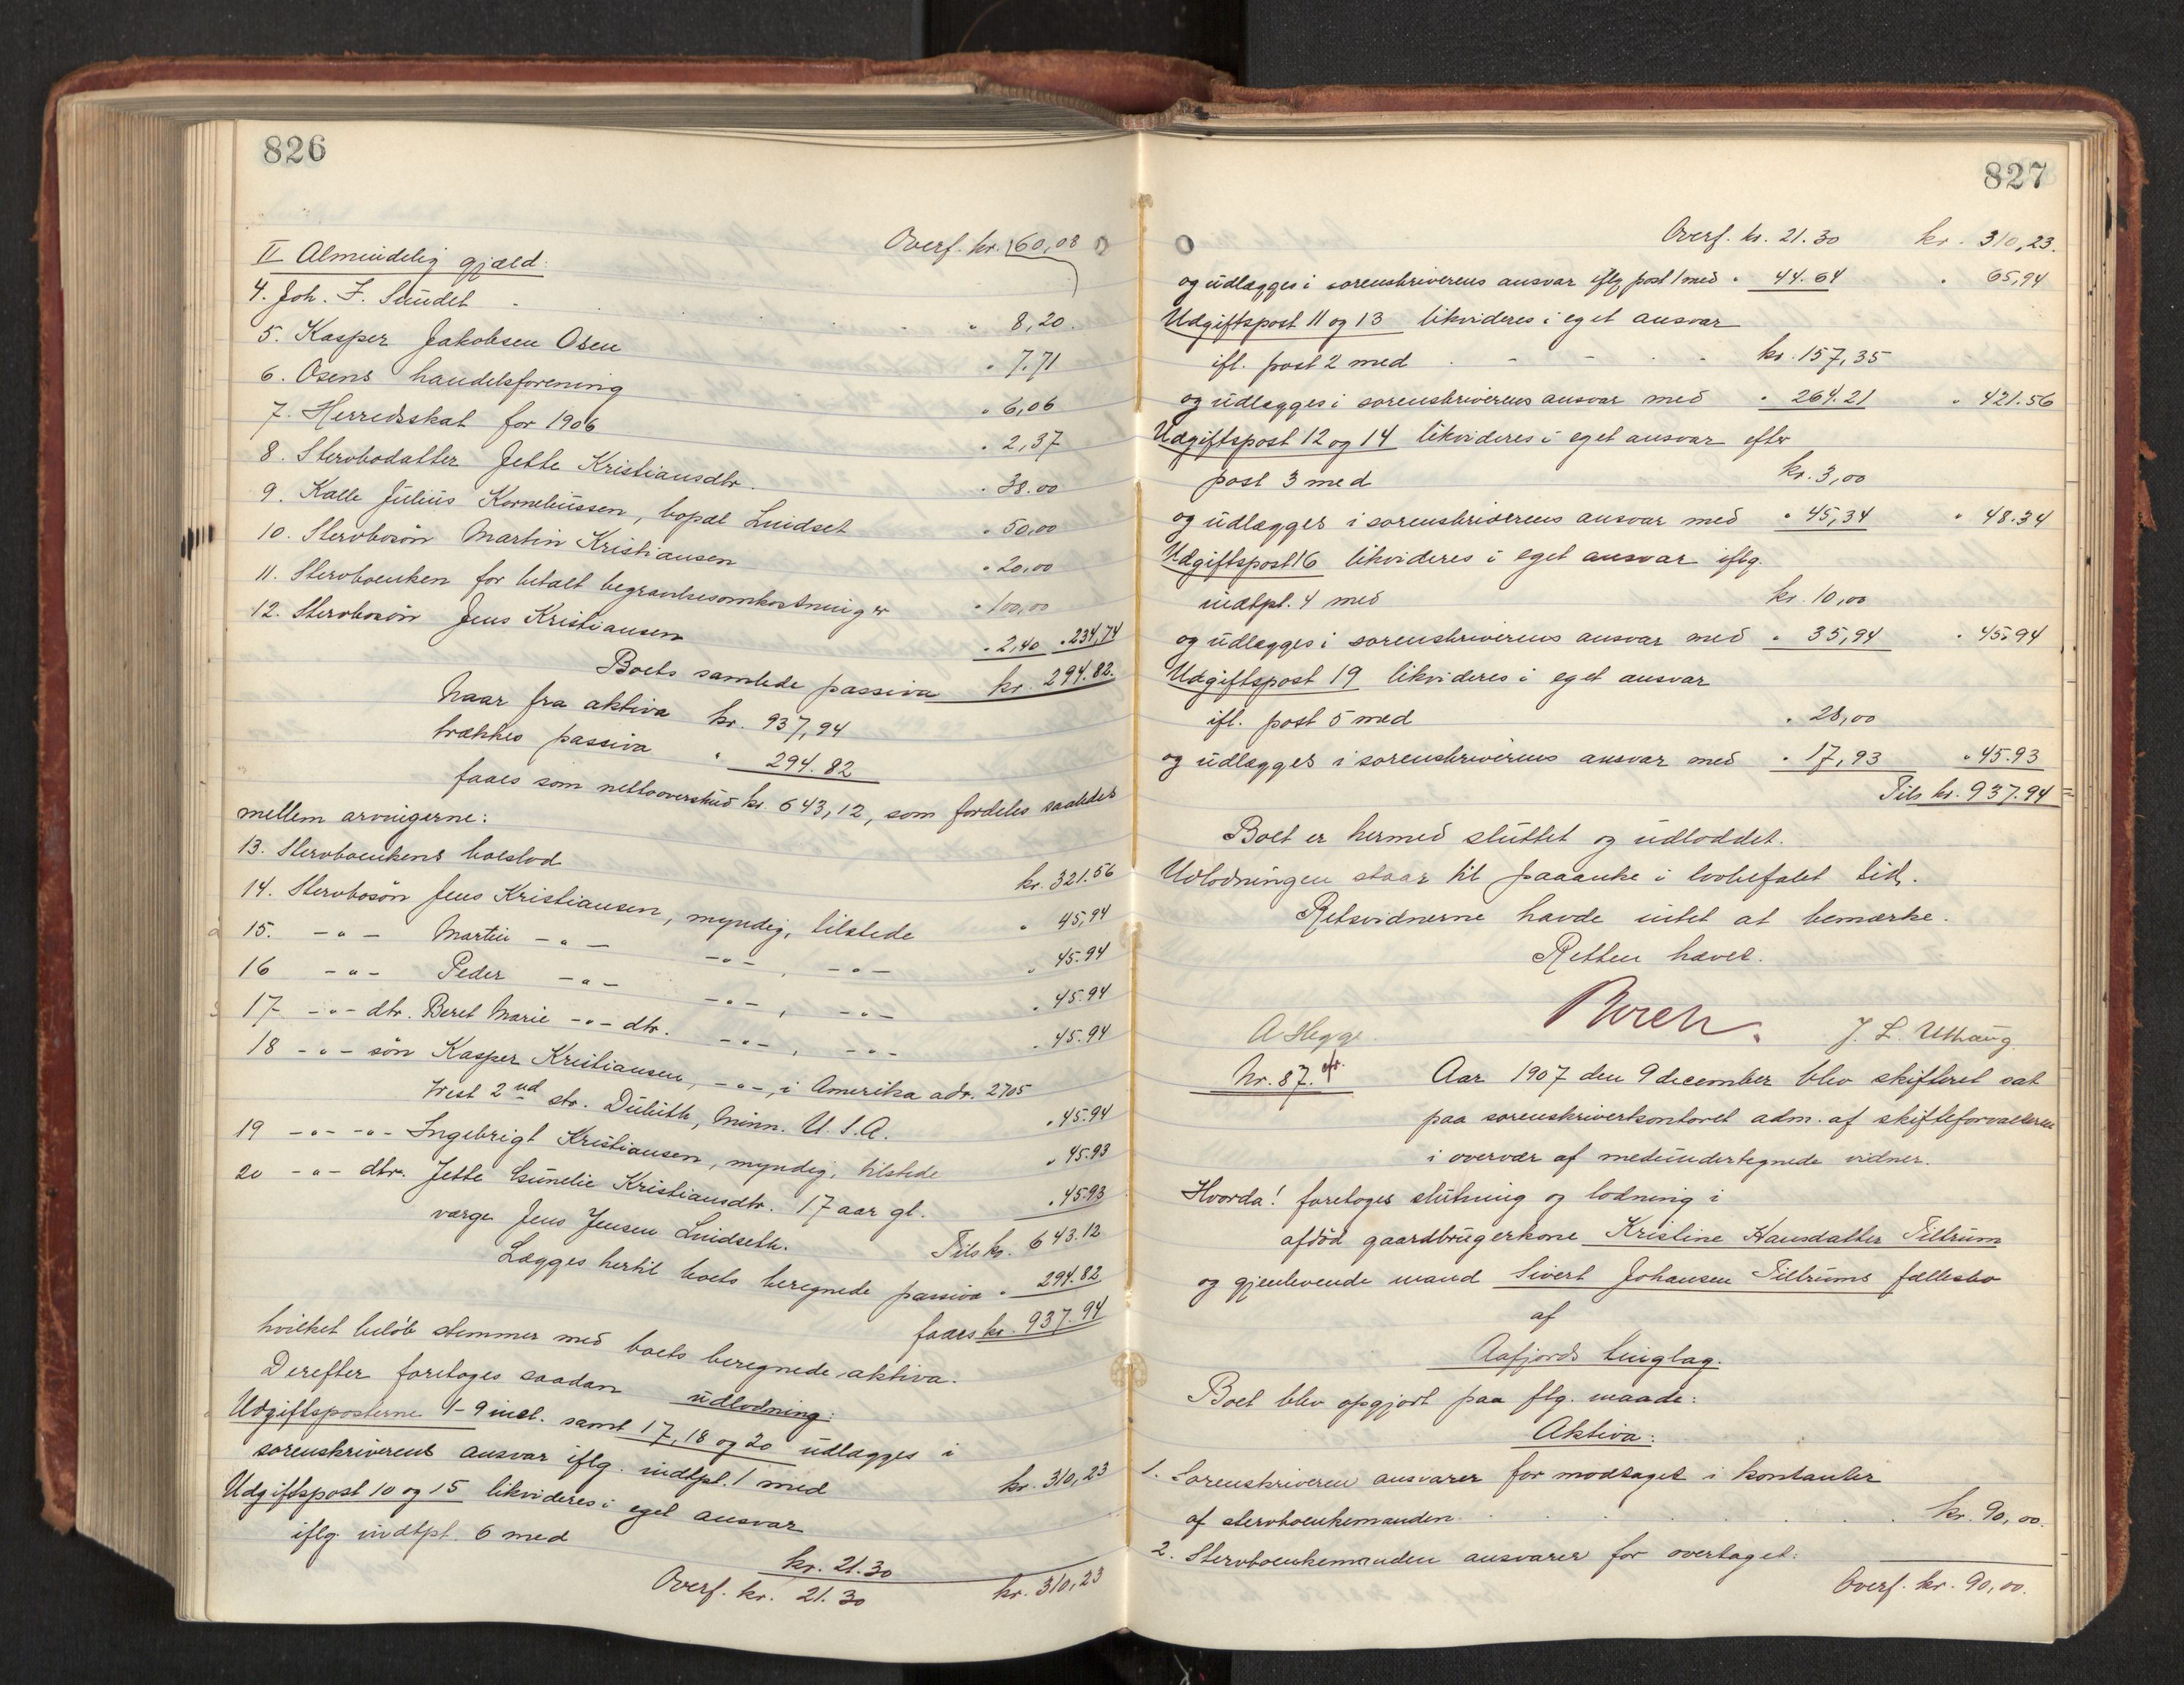 826
Overf. kr. 60,08
II Almindelig gjæld:
4. Joh. F. Sundet . . . . " 8,20.
5. Kasper Jakobsen Osen " 7.71
6. Osens handelsforening " 6,06
7. Herredsskat for 1906 " 2,37
8. Stervbodatter Jette Kristiansdtr. " 38.00
9. Kalle Julius Korneliussen, bopæl Lindset " 50,00
10. Stervbosön Martin Kristiansen " 20,00
11. Stervboenken for betalt begravelsesomkostninger " 100,00
12. Stervbosön Jens Kristiansen " 2,40 " 234,74
Boets samlede passiva kr. 294.82.
Naar fra aktiva kr. 937,94
trækkes passiva " 294.82
faaes som nettooverskud kr. 643,12, som fordeles saaledes
mellem arvingerne:
13. Stervboenkens boeslod kr. 321.56
14. Stervbosön Jens Kristiansen, myndig, tilstede " 45,94
15. -"- Martin -"- -"-, -"- " 45.94
16 -"- Peder -"- -"-, -"- " 45.94
17 -"- dtr. Beret Marie -"- dtr. -"-, -"- " 45.94
18 -"- sön Kasper Kristiansen, -"-, i Amerika adr. 2705
West 2nd str. Duluth, Minn. U.S.A. " 45.94
19 -"- -"- Ingebrigt Kristiansen, myndig, tilstede " 45.93
20 -"- dtr. Jette Gunelie Kristiansdtr. 17 aar gl. " 45.93
værge Jens Jensen Lindseth. Tils kr. 643.12
Lægges hertil boets beregnede passiva " 294.82
faaes kr. 937.94
hvilket belöb stemmer med boets beregnede aktiva.
Derefter foretoges saadan udlodning:
Udgiftsposterne 1-9 incl. samt 17, 18 og 20 udlægges i
sorenskriverens ansvar iflg. indtpt. 1 med kr. 310,23
Udgiftspost 10 og 15 likvideres i eget ansvar
iflg. indtpt. 6 med kr. 21.30
Overf. kr. 21.30 kr. 310,23
827
Overf. kr. 21.30 kr. 310,23.
og udlægges i sorenskriverens ansvar iflg. post 1 med " 44.64 " 65,94
Udgiftspost 11 og 13 likvideres i eget ansvar
ifl. post 2 med . - - . - kr. 157,35
og udlægges i sorenskriverens ansvar med " 264.21 " 421.56
Udgiftspost 12 og 14 likvideres i eget ansvar efter
post 3 med kr. 3,00
og udlægges i sorenskriverens ansvar med " 45,34 " 48.34
Udgiftspost 16 likvideres i eget ansvar iflg.
indtpt. 4 med kr. 10,00
og udlægges i sorenskriverens ansvar med " 35,94 " 45.94
Udgiftspost 19 likvideres i eget ansvar
ifl. post 5 med " 28,00
og udlægges i sorenskriverens ansvar med " 17,93 " 45.93
Tils kr. 937.94
Boet er hermed sluttet og udloddet.
Udlodningen staar til paaanke i lovbefalet tid.
Retsvidnerne havde intet at bemærke.
Retten hævet.
A Hegge. J. L. Uthaug.
Nr. 87. Aar 1907 den 9 december blev skifteret sat
paa sorenskriverkontoret adm. af skifteforvalteren
i overvær af medundertegnede vidner.
Hvorda! foretoges slutning og lodning i
afdöd gaardbrugerkone Kristine Hansdatter Tiltrum
og gjenlevende mand Sivert Johansen Tiltrums fællesbo
af
Aafjords tinglag.
Boet blev opgjort paa flg. maade:
Aktiva:
1. Sorenskriveren ansvarer for modtaget i kontanter
af stervboenkemanden . . . . . kr. 90,00.
2. Stervboenkemanden ansvarer for overtaget:
Overf. kr. 90,00.